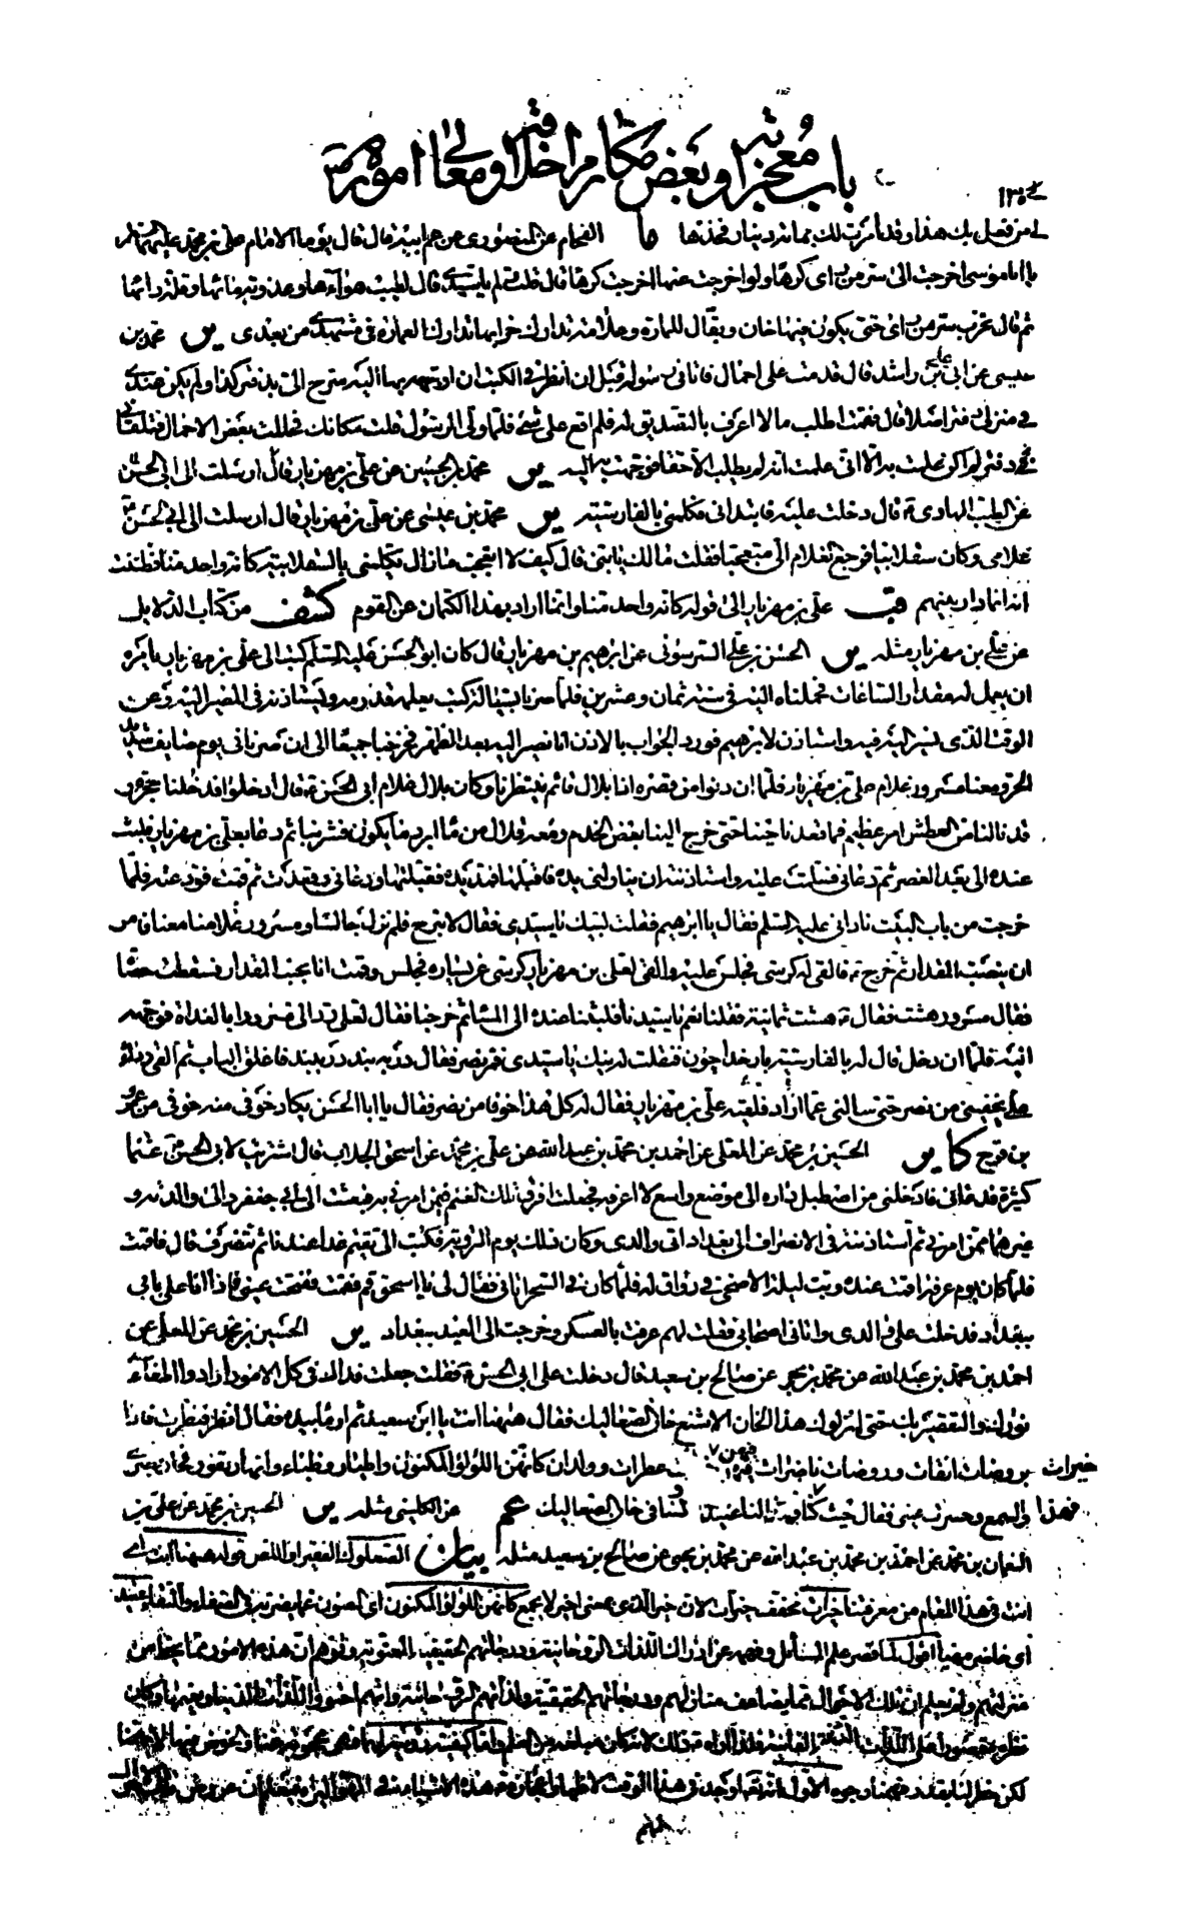 باب معجزاته وبعض مكارم اخلاقه ومعالى اموره ص
١٣٠
من فضل بك هذا وقد أمرت لك بمائة دينار فخذها ما الفحام عن المنصورى عن عم ابيه قال قال يوما الامام على بن محمد عليهما
يا ابا موسى اخرجت الى سر من راى كرها ولو اخرجت عنها اخرجت كرها قال قلت ولم يا سيدى قال لطيب هوآءها وعذوبة مائها وقلة دائها
ثم قال تخرب سر من راى حتى يكون فيها خان وبقال للمارة وعلامة تدارك خرابها تدارك العمارة فى مشهدى من بعدى ير محمد بن
عيسى عن ابى على بن راشد قال قدمت على احمال فاتانى رسوله قبل ان انظر فى الكتب ان اوجه بها اليه سرح الى بدفتر كذا ولم يكن عندى
فى منزلى دفتر اصلا قال فقمت اطلب ما لا اعرف بالتصديق له فلم اقع على شئ فلما ولى الرسول قلت مكانك فحللت بعض الاحمال فتلقانى
دفتر لم اكن علمت به الا انى علمت انه لم يطلب الا حقا فوجهت به اليه ير محمد بن الحسين عن على بن مهزيار قال ارسلت الى ابى الحسن
عن الطيب الهادى ع قال دخلت عليه فابتدانى فكلمنى بالفارسية ير محمد بن عيسى عن على بن مهزيار قال ارسلت الى ابى الحسن ع
غلامى وكان سقلابيا فرجع الغلام الى متعجبا فقلت ما لك يا بنى قال كيف لا اتعجب ما زال يكلمنى بالسقلابية كانه واحد منا فظننت
انه انما دار بينهم قب على بن مهزيار الى قوله كانه واحد منا وانما اراد بهذا الكتمان عن القوم كشف من كتاب الدلايل
عن على بن مهزيار مثله ير الحسن بن على السرسونى عن ابرهيم بن مهزيار قال كان ابو الحسن عليه السلم كتب الى على بن مهزيار يامره
ان يعمل له مقدار الساعات فحملناه اليه فى سنة ثمان وعشرين فلما صرنا بسيالة كتب يعلمه قدومه ويستاذنه فى المصير اليه وعن
الوقت الذى نسير اليه فيه واستاذن لابرهيم فورد الجواب بالاذن انا نصير اليه بعد الظهر فخرجنا جميعا الى ان صرنا فى يوم صايف شديد
الحر ومعنا مسرور غلام على بن مهزيار فلما ان دنوا من قصره اذا بلال قائم ينتظرنا وكان بلال غلام ابى الحسن ع قال ادخلوا فدخلنا حجرة
قد نالنا من العطش امر عظيم فما قعدنا حينا حتى خرج الينا بعض الخدم ومعه قلال من ماء ابرد ما يكون فشربنا ثم دعا بعلى بن مهزيار فلبث
عنده الى بعد العصر ثم دعانى فسلمت عليه واستاذنته ان يناولنى يده فاقبلها فمد يده فقبلتها ودعانى وقعدت ثم قمت فودعته فلما
خرجت من باب البيت نادانى عليه السلم فقال يا ابرهيم فقلت لبيك يا سيدى فقال لا تبرح فلم نزل جالسا ومسرور غلامنا معنا فامر
ان ينصب المقدار ثم خرج ع فالقى له كرسى فجلس عليه والقى لعلى بن مهزيار كرسى عن يساره فجلس وقمت انا بجنب المقدار فسقطت حصاة
فقال مسرور هشت فقال ع هشت ثمانية فقلنا نعم يا سيدنا فلبثنا عنده الى المسا ثم خرجنا فقال لعلى رد الى مسرورا بالغداة فوجهه
اليه فلما ان دخل قال له بالفارسية بار خدا چون فقلت له نيك يا سيدى فمر نصر فقال در ببند در ببند فاغلق الباب ثم القى رداه
على يخفينى من نصر حتى سالنى عما اراد فلقيه على بن مهزيار فقال له كل هذا خوفا من نصر فقال يا ابا الحسن يكاد خوفى منه خوفى من عمرو
بن قرح كا ير الحسين بن محمد عن المعلى عن احمد بن محمد بن عبد الله عن على بن محمد عن اسحق الجلاب قال اشتريت لابى الحسن ع غنما
كثيرة فدعانى فادخلنى من اصطبل داره الى موضع واسع لا اعرفه فجعلت افرق تلك الغنم فيمن امرنى به فبعثت الى ابى جعفر والى والدته و
غيرهما ممن امرنى ثم استاذنته فى الانصراف الى بغداد الى والدى وكان ذلك يوم التروية فكتب الى تقيم غدا عندنا ثم تنصرف قال فاقمت
فلما كان يوم عرفة اقمت عنده وبت ليلة الاضحى فى رواق له فلما كان فى السحر اتانى فقال لى يا اسحق قم فقمت ففتحت عينى فاذا انا على بابى
ببغداد فدخلت على والدى واتانى اصحابى فقلت لهم عرفت بالعسكر وخرجت الى العيد ببغداد ير الحسين بن محمد عن المعلى عن
احمد بن محمد بن عبد الله عن محمد بن يحيى عن صالح بن سعيد قال دخلت على ابى الحسن ع فقلت جعلت فداك فى كل الامور ارادوا اطفآء
نورك والتقصير بك حتى انزلوك هذا الخان الاشنع خان الصعاليك فقال ههنا انت يا ابن سعيد ثم اومأ بيده فقال انظر فنظرت فاذا
بروضات انقات وروضات ناضرات فيهن خيرات عطرات وولدان كانهن اللؤلؤ المكنون واطيار وظباء وانهار تفور فحار بصرى
والتمع وحسرت عينى فقال حيث كنا فهذا لنا عتيد ولسنا فى خان الصعاليك عم عن الكلينى مثله ير الحسين بن محمد عن على بن
النعمان بن محمد عن احمد بن محمد بن عبد الله عن محمد بن يحيى عن صالح بن سعيد مثله بيان الصعلوك الفقير او اللص قوله ههنا انت اى
انت فى هذا المقام من معرفتنا خيرات مخفف خيرات لان خير الذى بمعنى اخير لا يجمع كانهن اللؤلؤ المكنون اى المصون عما يضر به فى الصفاء والنقاء عتيد
اى حاضر مهيا اقول لما قصر علم السائل وفهمه عن ادراك اللذات الروحانية ودرجاتهم الحقيقية المعنوية وتوهم ان هذه الامور مما يحط من
منزلتهم ولم يعلم ان تلك الاحوال مما يضاعف منازلهم ودرجاتهم الحقيقية ولذاتهم الروحانية وانهم اجتووا اللذات الدنيا ونعيمها وكان
نظره مقصورا على اللذات الدنية الفانية فلذا اراه ع ذلك لانه كان مبلغه من العلم واما كيفية رؤيته لها فهى محجوبة عنا والخوض فيها لا يهمنا
لكن خطر لنا بقدر فهمنا وجوه الاول انه تعالى اوجد فى هذا الوقت لاظهار اعجازه ع هذه الاشياء فى الهواء ليراه فيعلم ان عروض تلك الاحوال
لهم